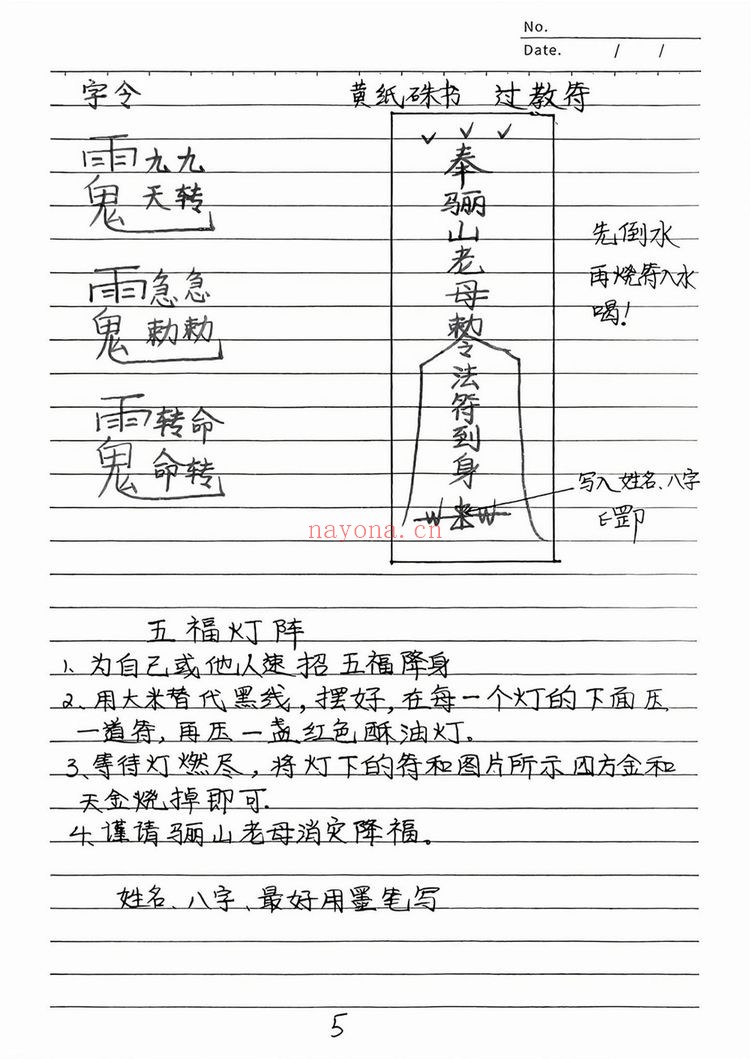 No.
Date. / /
字令
黄纸硃书 过教符
雨 九九
鬼 天转
雨 急急
鬼 勅勅
雨 转命
鬼 命转
奉骊山老母勅令法符到身
先倒水
再烧符入水
喝!
写入姓名、八字
nayona.cn
五福灯阵
1、为自己或他人速招五福降身
2、用大米替代黑线,摆好,在每一个灯的下面压
一道符,再压一盏红色酥油灯.
3、等待灯燃尽,将灯下的符和图片所示四方金和
天金烧掉即可.
4、谨请骊山老母消灾降福。
姓名、八字、最好用墨笔写
5